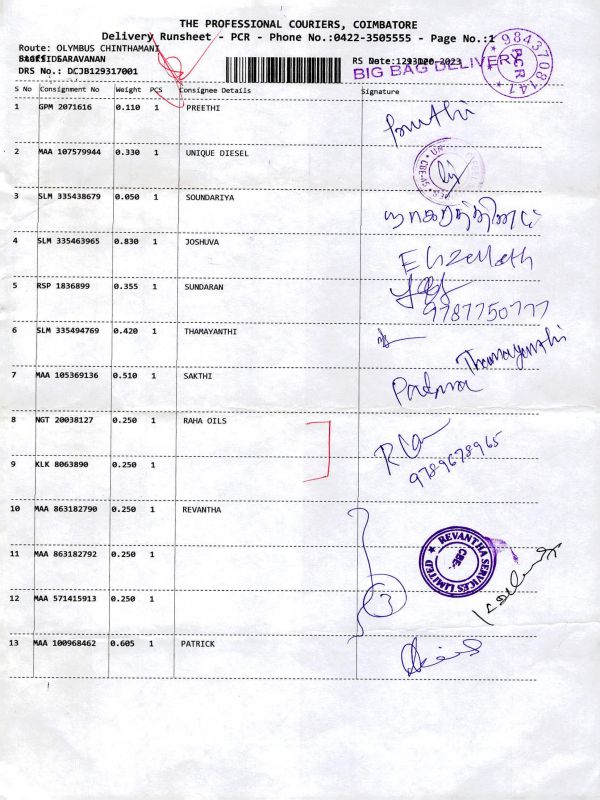 THE PROFESSIONAL COURIERS, COIMBATORE
Delivery Runsheet - PCR - Phone No.:0422-3505555 - Page No.:1
Route: OLYMBUS CHINTHAMANI
SARAVANAN
DRS No.: DCJB129317001
RS Date:
BIG BAG DELIVERY
9843708141
PCR
S No Consignment No Weight PCS Consignee Details Signature
1 GPM 2071616 0.110 1 PREETHI
2 MAA 107579944 0.330 1 UNIQUE DIESEL
3 SLM 335438679 0.050 1 SOUNDARIYA
4 SLM 335463965 0.830 1 JOSHUVA
5 RSP 1836899 0.355 1 SUNDARAN
9787750777
6 SLM 335494769 0.420 1 THAMAYANTHI
Thamayanthi
7 MAA 105369136 0.510 1 SAKTHI
Padma
8 NGT 20038127 0.250 1 RAHA OILS
9789678965
9 KLK 8063890 0.250 1
10 MAA 863182790 0.250 1 REVANTHA
REVANTHA SERVICES LIMITED
CBE-
11 MAA 863182792 0.250 1
12 MAA 571415913 0.250 1
3
13 MAA 100968462 0.605 1 PATRICK